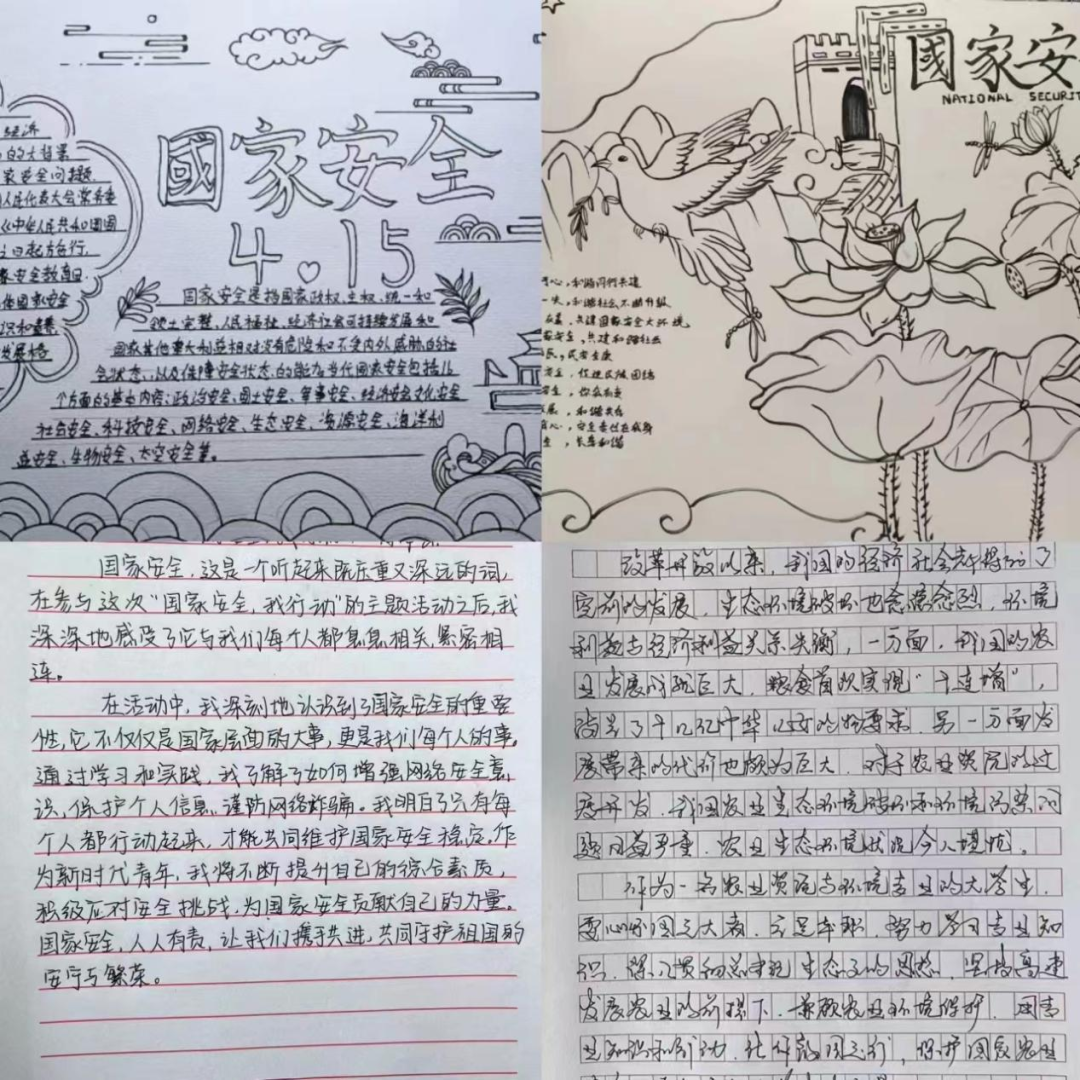 国家安全
4.15
经济
的大背景
家安全问题
人民代表大会常务委
《中华人民共和国国
之日起施行,
家安全教育日
国家安全是指国家政权、主权、统一和
领土完整、人民福祉、经济社会可持续发展和
国家其他重大利益相对没有危险和不受内外威胁的社
会状态,以及保障安全状态的能力当代国家安全包括16
个方面的基本内容:政治安全、国土安全、军事安全、经济安全文化安全
社会安全、科技安全、网络安全、生态安全、资源安全、海洋利
益安全、生物安全、太空安全等。
國家安
NATIONAL SECURIT
心,和谐同行共建
和谐社会不断升级
共建国家安全大环境
家安全,共建和谐社会
民,民安至康
安全,促进民族团结
展,和谐共存
心,安全责任在我身
国家安全,这是一个听起来既庄重又深远的词,
在参与这次“国家安全,我行动”的主题活动之后,我
深深地感受了它与我们每个人都息息相关,紧密相
连。
在活动中,我深刻地认识到了国家安全的重要
性,它不仅仅是国家层面的大事,更是我们每个人的事。
通过学习和实践,我了解了如何增强网络安全意
识,保护个人信息,谨防网络诈骗。我明白了只有每
个人都行动起来,才能共同维护国家安全稳定,作
为新时代青年,我将不断提升自己的综合素质,
积极应对安全挑战,为国家安全贡献自己的力量。
国家安全,人人有责,让我们携手共进,共同守护祖国的
安宁与繁荣。
改革开放以来,我国的经济社会都得到了
空前的发展,生态环境破坏也愈演愈烈,环境
利益与经济利益关系失衡,一方面,我国的农
业发展成就巨大,粮食首次实现“十连增”,
满足了十几亿中华儿女的物质要求,另一方面发
展带来的代价也颇为巨大,对于农业资源的过
度开发,我国农业生态环境破坏和环境污染问
题日益严重,农业生态环境状况令人堪忧。
作为一名农业资源与环境专业的大学生,
要心怀国之大者,立足本职,努力学习专业知
识,深入贯彻总书记生态文明思想,坚持高速
发展农业的前提下,兼顾农业环境保护,用专
业知识和行动,保护国家农业